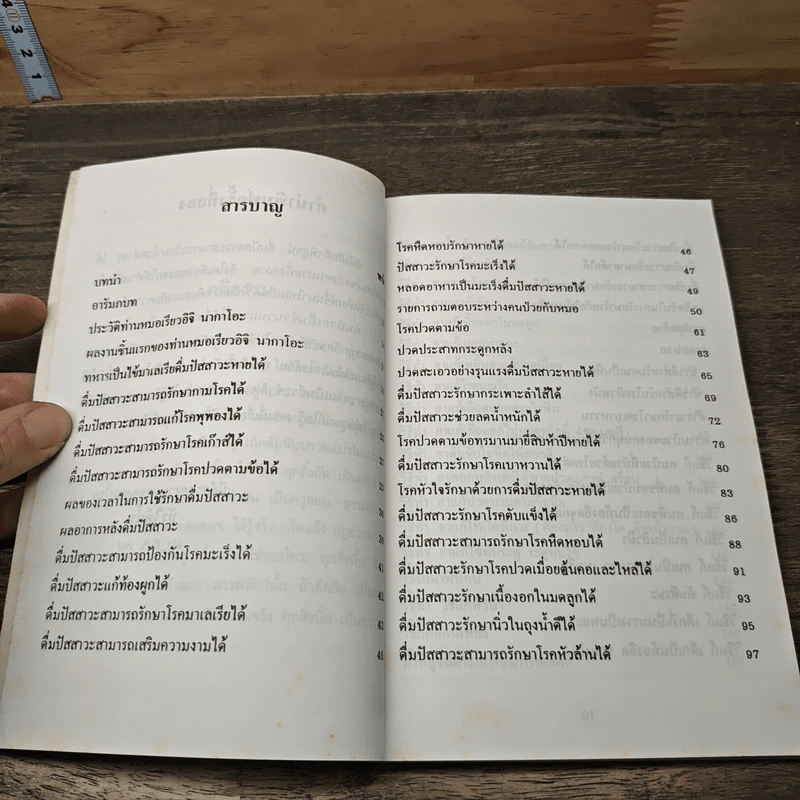 สารบาญ
บทนำ
อารัมภบท
ประวัติท่านหมอเรียวอิจิ นากาโอะ
ผลงานชิ้นแรกของท่านหมอเรียวอิจิ นากาโอะ
ทหารเป็นไข้มาเลเรียดื่มปัสสาวะหายได้
ดื่มปัสสาวะสามารถรักษากามโรคได้
ดื่มปัสสาวะสามารถแก้โรคพุพองได้
ดื่มปัสสาวะสามารถรักษาโรคเก๊าส์ได้
ดื่มปัสสาวะสามารถรักษาโรคปวดตามข้อได้
ผลของเวลาในการใช้รักษาดื่มปัสสาวะ
ผลอาการหลังดื่มปัสสาวะ
ดื่มปัสสาวะสามารถป้องกันโรคมะเร็งได้
ดื่มปัสสาวะแก้ท้องผูกได้
ดื่มปัสสาวะสามารถรักษาโรคมาเลเรียได้
ดื่มปัสสาวะสามารถเสริมความงามได้
โรคหืดหอบรักษาหายได้ 46
ปัสสาวะรักษาโรคมะเร็งได้ 47
หลอดอาหารเป็นมะเร็งดื่มปัสสาวะหายได้ 49
รายการถามตอบระหว่างคนป่วยกับหมอ 50
โรคปวดตามข้อ 61
ปวดประสาทกระดูกหลัง 63
ปวดสะเอวอย่างรุนแรงดื่มปัสสาวะหายได้ 65
ดื่มปัสสาวะรักษากระเพาะลำไส้ได้ 69
ดื่มปัสสาวะช่วยลดน้ำหนักได้ 72
โรคปวดตามข้อทรมานมายี่สิบห้าปีหายได้ 76
ดื่มปัสสาวะรักษาโรคเบาหวานได้ 80
โรคหัวใจรักษาด้วยการดื่มปัสสาวะหายได้ 83
ดื่มปัสสาวะรักษาโรคตับแข็งได้ 86
ดื่มปัสสาวะสามารถรักษาโรคหืดหอบได้ 88
ดื่มปัสสาวะรักษาโรคปวดเมื่อยต้นคอและไหล่ได้ 91
ดื่มปัสสาวะรักษาเนื้องอกในมดลูกได้ 93
ดื่มปัสสาวะรักษานิ่วในถุงน้ำดีได้ 95
ดื่มปัสสาวะสามารถรักษาโรคหัวล้านได้ 97